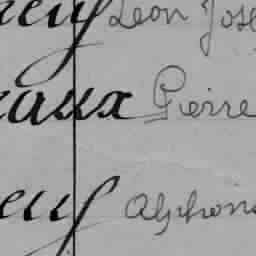 euf Léon Jose
eaux Pierre
euf Alphons